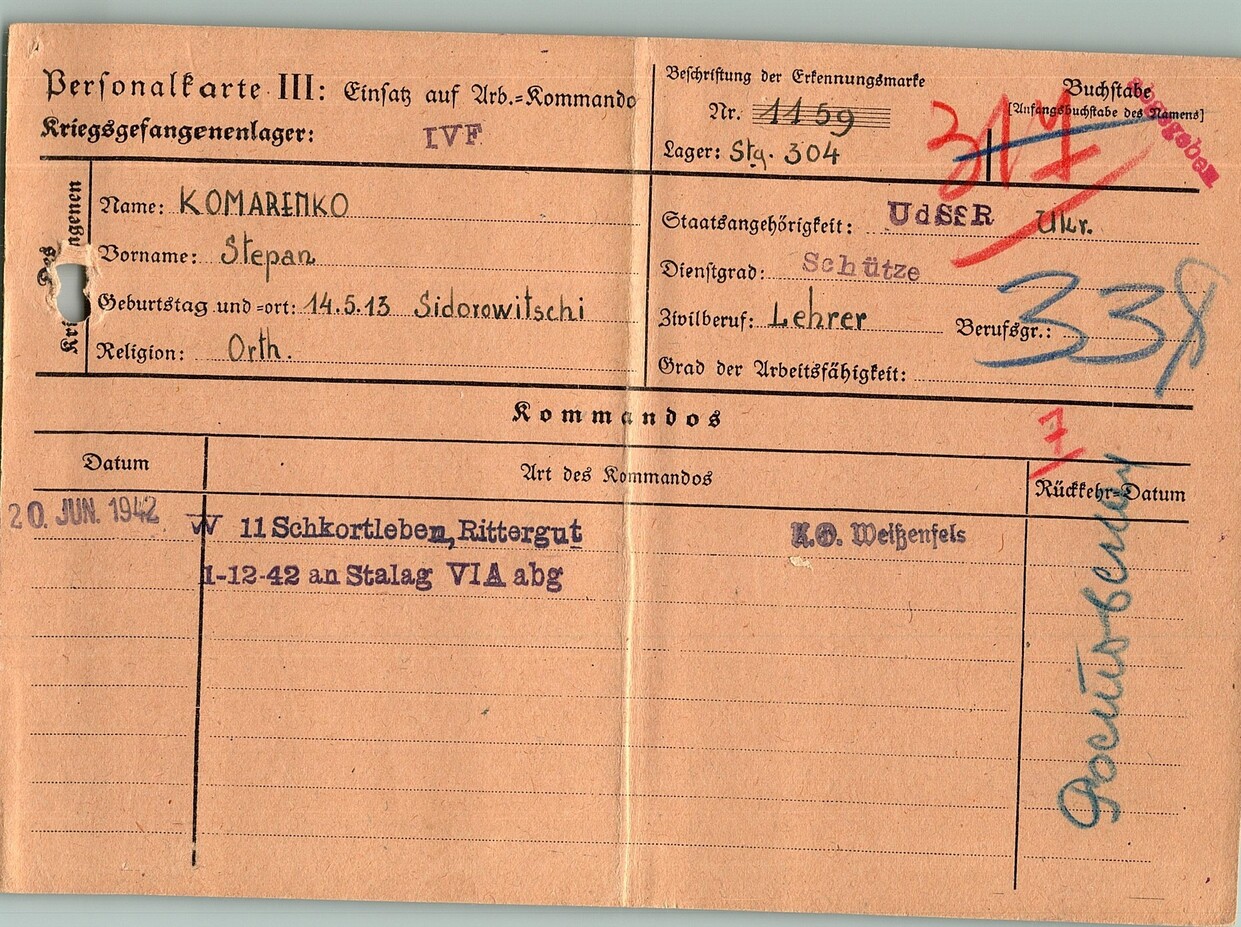 Personalkarte III: Einsatz auf Arb.=Kommando
Kriegsgefangenenlager: IVF
Beschriftung der Erkennungsmarke
Nr. 1159
Lager: Stg. 304
Buchstabe
[Anfangsbuchstabe des Namens]
abgegeben
317
Des Kriegsgefangenen
Name: KOMARENKO
Vorname: Stepan
Geburtstag und =ort: 14.5.13 Sidorowitschi
Religion: Orth.
Staatsangehörigkeit: UdSSR Ukr.
Dienstgrad: Schütze
Zivilberuf: Lehrer Berufsgr.:
338
Grad der Arbeitsfähigkeit:
Kommandos
7
Datum Art des Kommandos Rückkehr=Datum
20. JUN. 1942 W 11 Schkortleben, Rittergut K.O. Weißenfels
1-12-42 an Stalag VIA abg